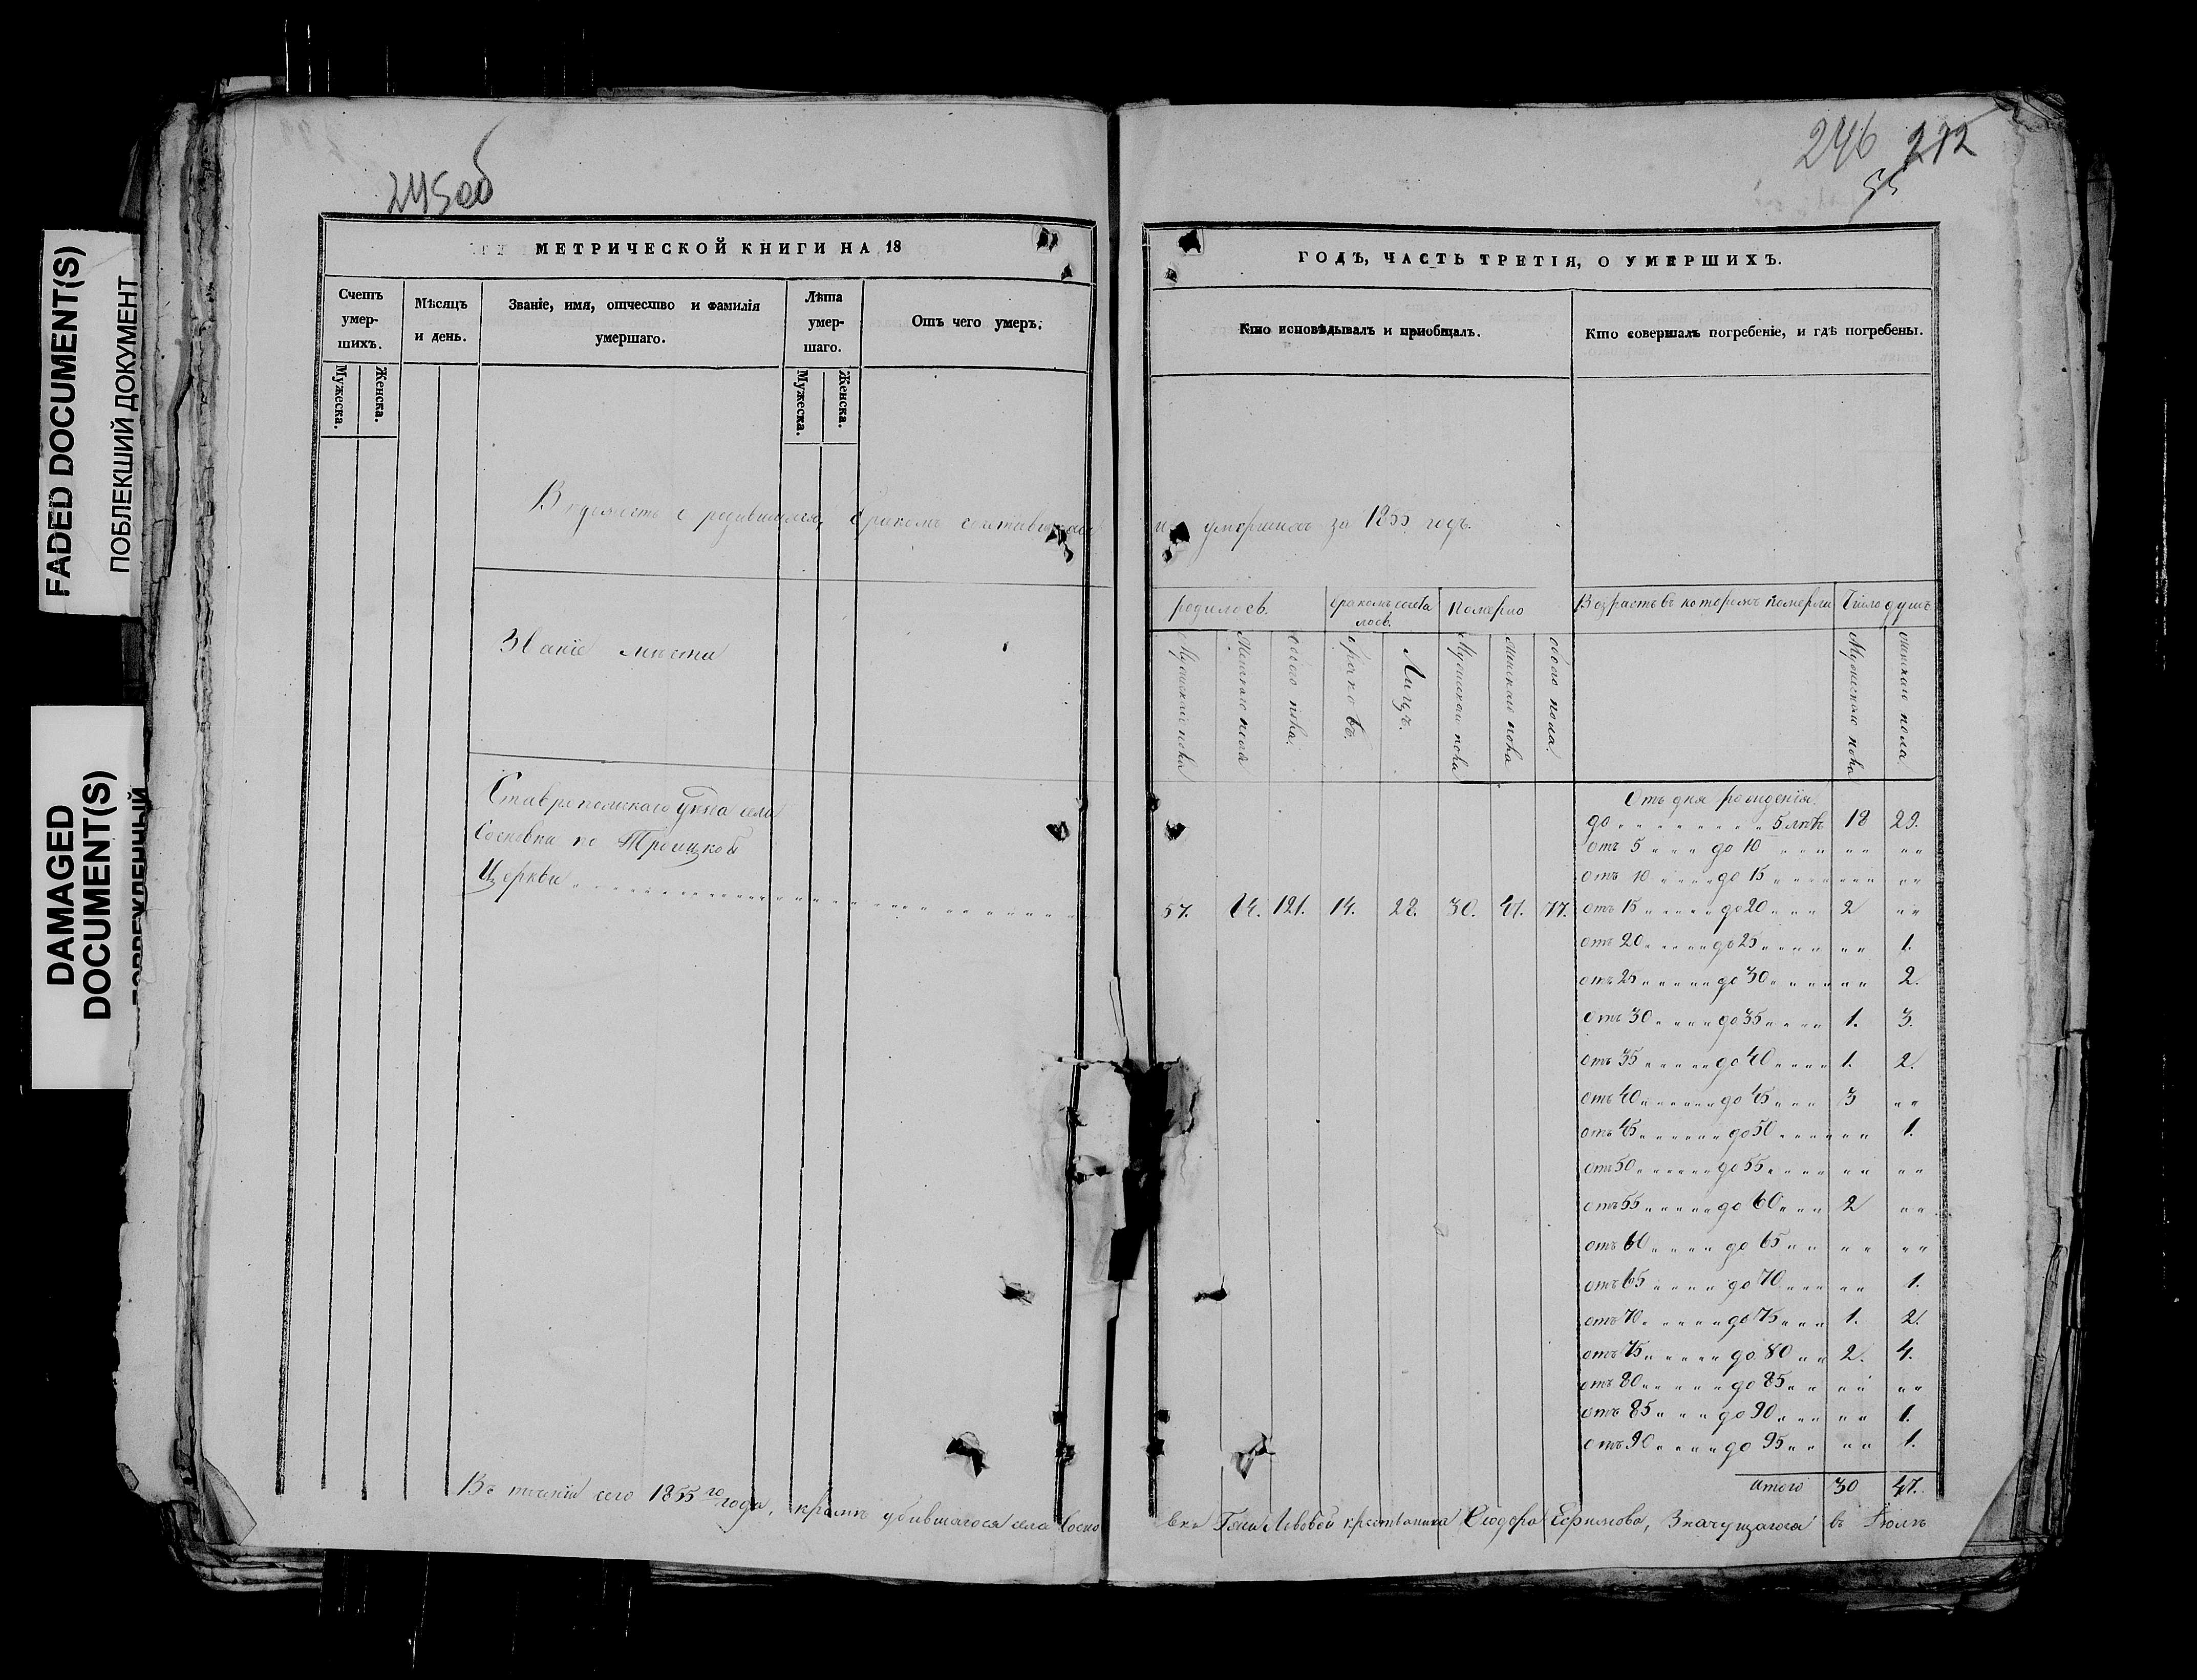 FADED DOCUMENT(S)
ПОБЛЕКШИЙ ДОКУМЕНТ
DAMAGED
DOCUMENT(S)
245 об
МЕТРИЧЕСКОЙ КНИГИ НА 18
Счетъ умер-шихъ.
Мужеска.
Женска.
Мѣсяцъ и день.
Званіе, имя, отчество и фамилія умершаго.
Лѣта умер-шаго.
Мужеска.
Женска.
Отъ чего умеръ.
Вѣдомость о родившихся, бракомъ сочетавшихся
Званіе мѣста
Ставропольскаго уѣзда села
Сосновки по Троицкой
Церкви
Въ теченіи сего 1855 го года, кромѣ убившагося села Сосно
246 272
55
ГОДЪ, ЧАСТЬ ТРЕТІЯ, О УМЕРШИХЪ.
Кто исповѣдывалъ и приобщалъ.
Кто совершалъ погребеніе, и гдѣ погребены.
и умершихъ за 1855 годъ.
родилось.
бракомъ сочета лось.
Померло
Возрастъ въ которомъ померли
Число душъ
Мужескаго пола
Женскаго пола
обоего пола.
браковъ.
Лицъ.
Мужескаго пола
женскаго пола
обоего пола
Мужескаго пола
женскаго пола
57. 64. 121. 14. 28. 30. 47. 77.
Отъ дня рожденія
до 5 лѣтъ 18 29.
отъ 5 до 10 " " " "
отъ 10 до 15 " " " "
отъ 15 до 20 2 " "
отъ 20 до 25 " " 1.
отъ 25 до 30 " " 2.
отъ 30 до 35 1. 3.
отъ 35 до 40 1. 2.
отъ 40 до 45 3 " "
отъ 45 до 50 " " 1.
отъ 50 до 55 " " " "
отъ 55 до 60 2 " "
отъ 60 до 65 " " " "
отъ 65 до 70 " " 1.
отъ 70 до 75 1. 2.
отъ 75 до 80 2. 4.
отъ 80 до 85 " " " "
отъ 85 до 90 " " 1.
отъ 90 до 95 " " 1.
итого 30 47.
вки Львовой крестьянина Сидора Ефимова, Значущагося въ Іюлѣ